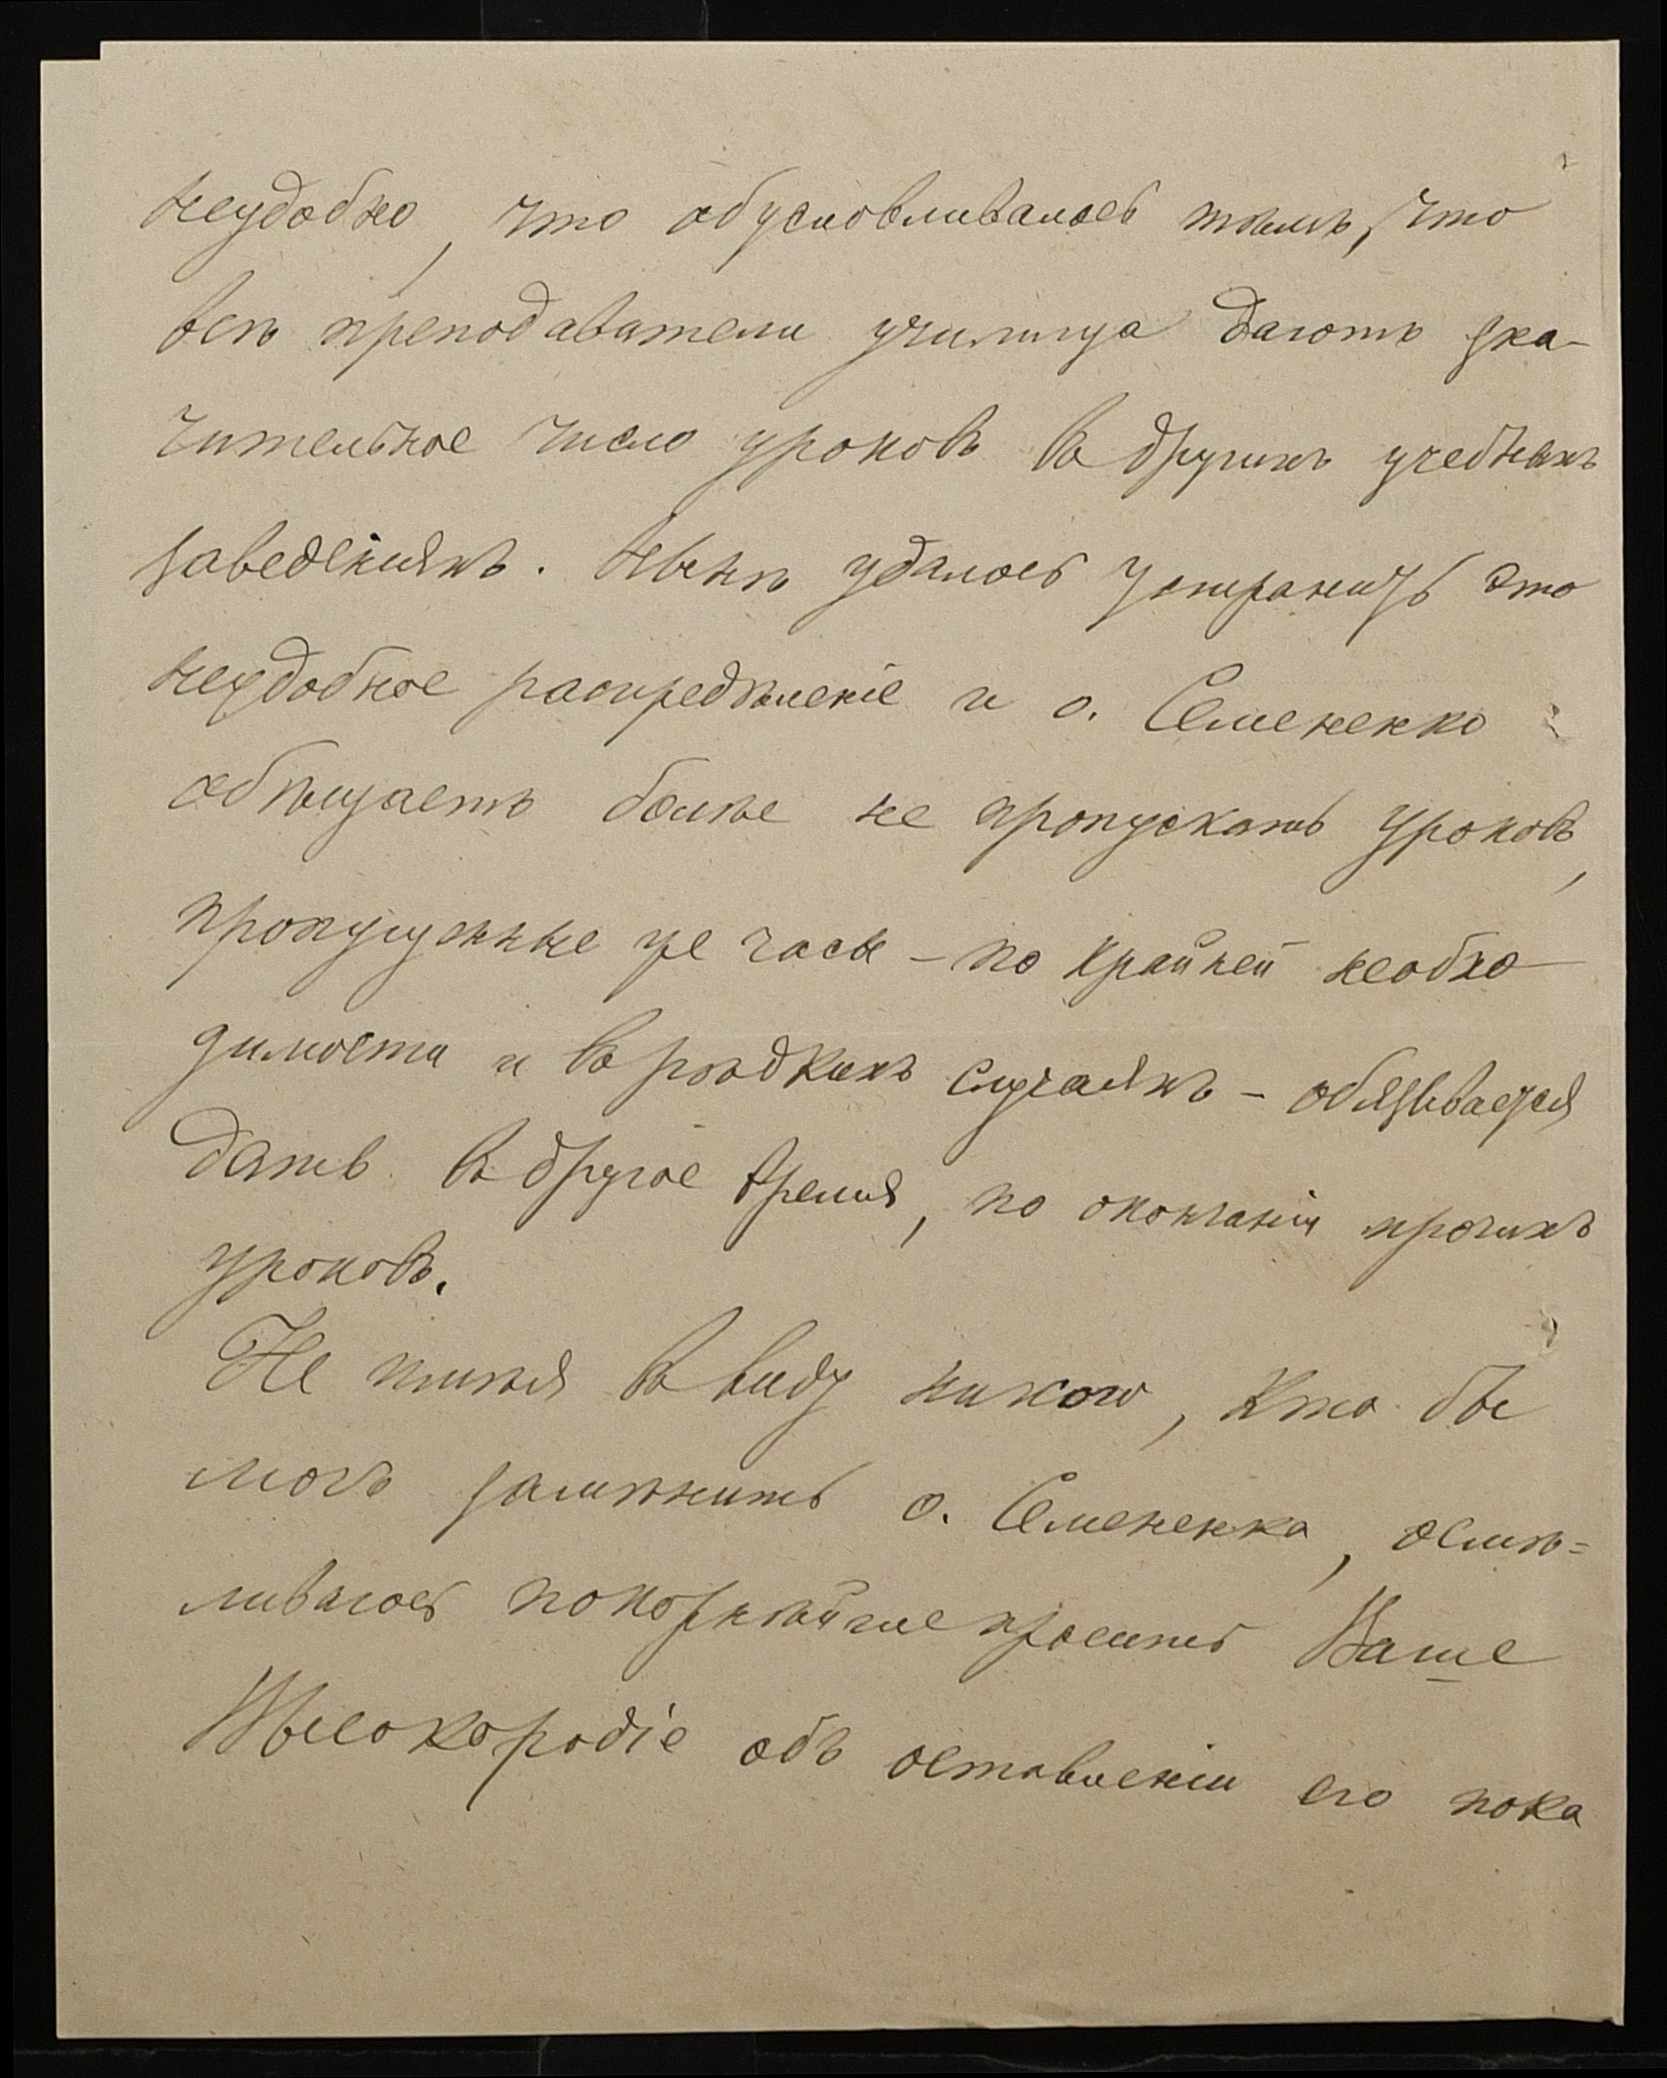 неудобно, что обусловливалось тѣмъ, что
всѣ преподаватели училища даютъ зна-
чительное число уроковъ въ другихъ учебныхъ
заведеніяхъ. Нынѣ удалось устранить это
неудобное распредѣленіе и о. Семененко
обѣщаетъ болѣе не пропускать уроковъ,
пропущенные же часы – по крайней необхо-
димости и въ рѣдкихъ случаяхъ – обязывается
дать въ другое время, по окончаніи прочихъ
уроковъ.
Не имѣя въ виду никого, кто бы
могъ замѣнить о. Семененка, осмѣ=
ливаюсь покорнѣйше просить Ваше
Высокородіе объ оставленіи его пока